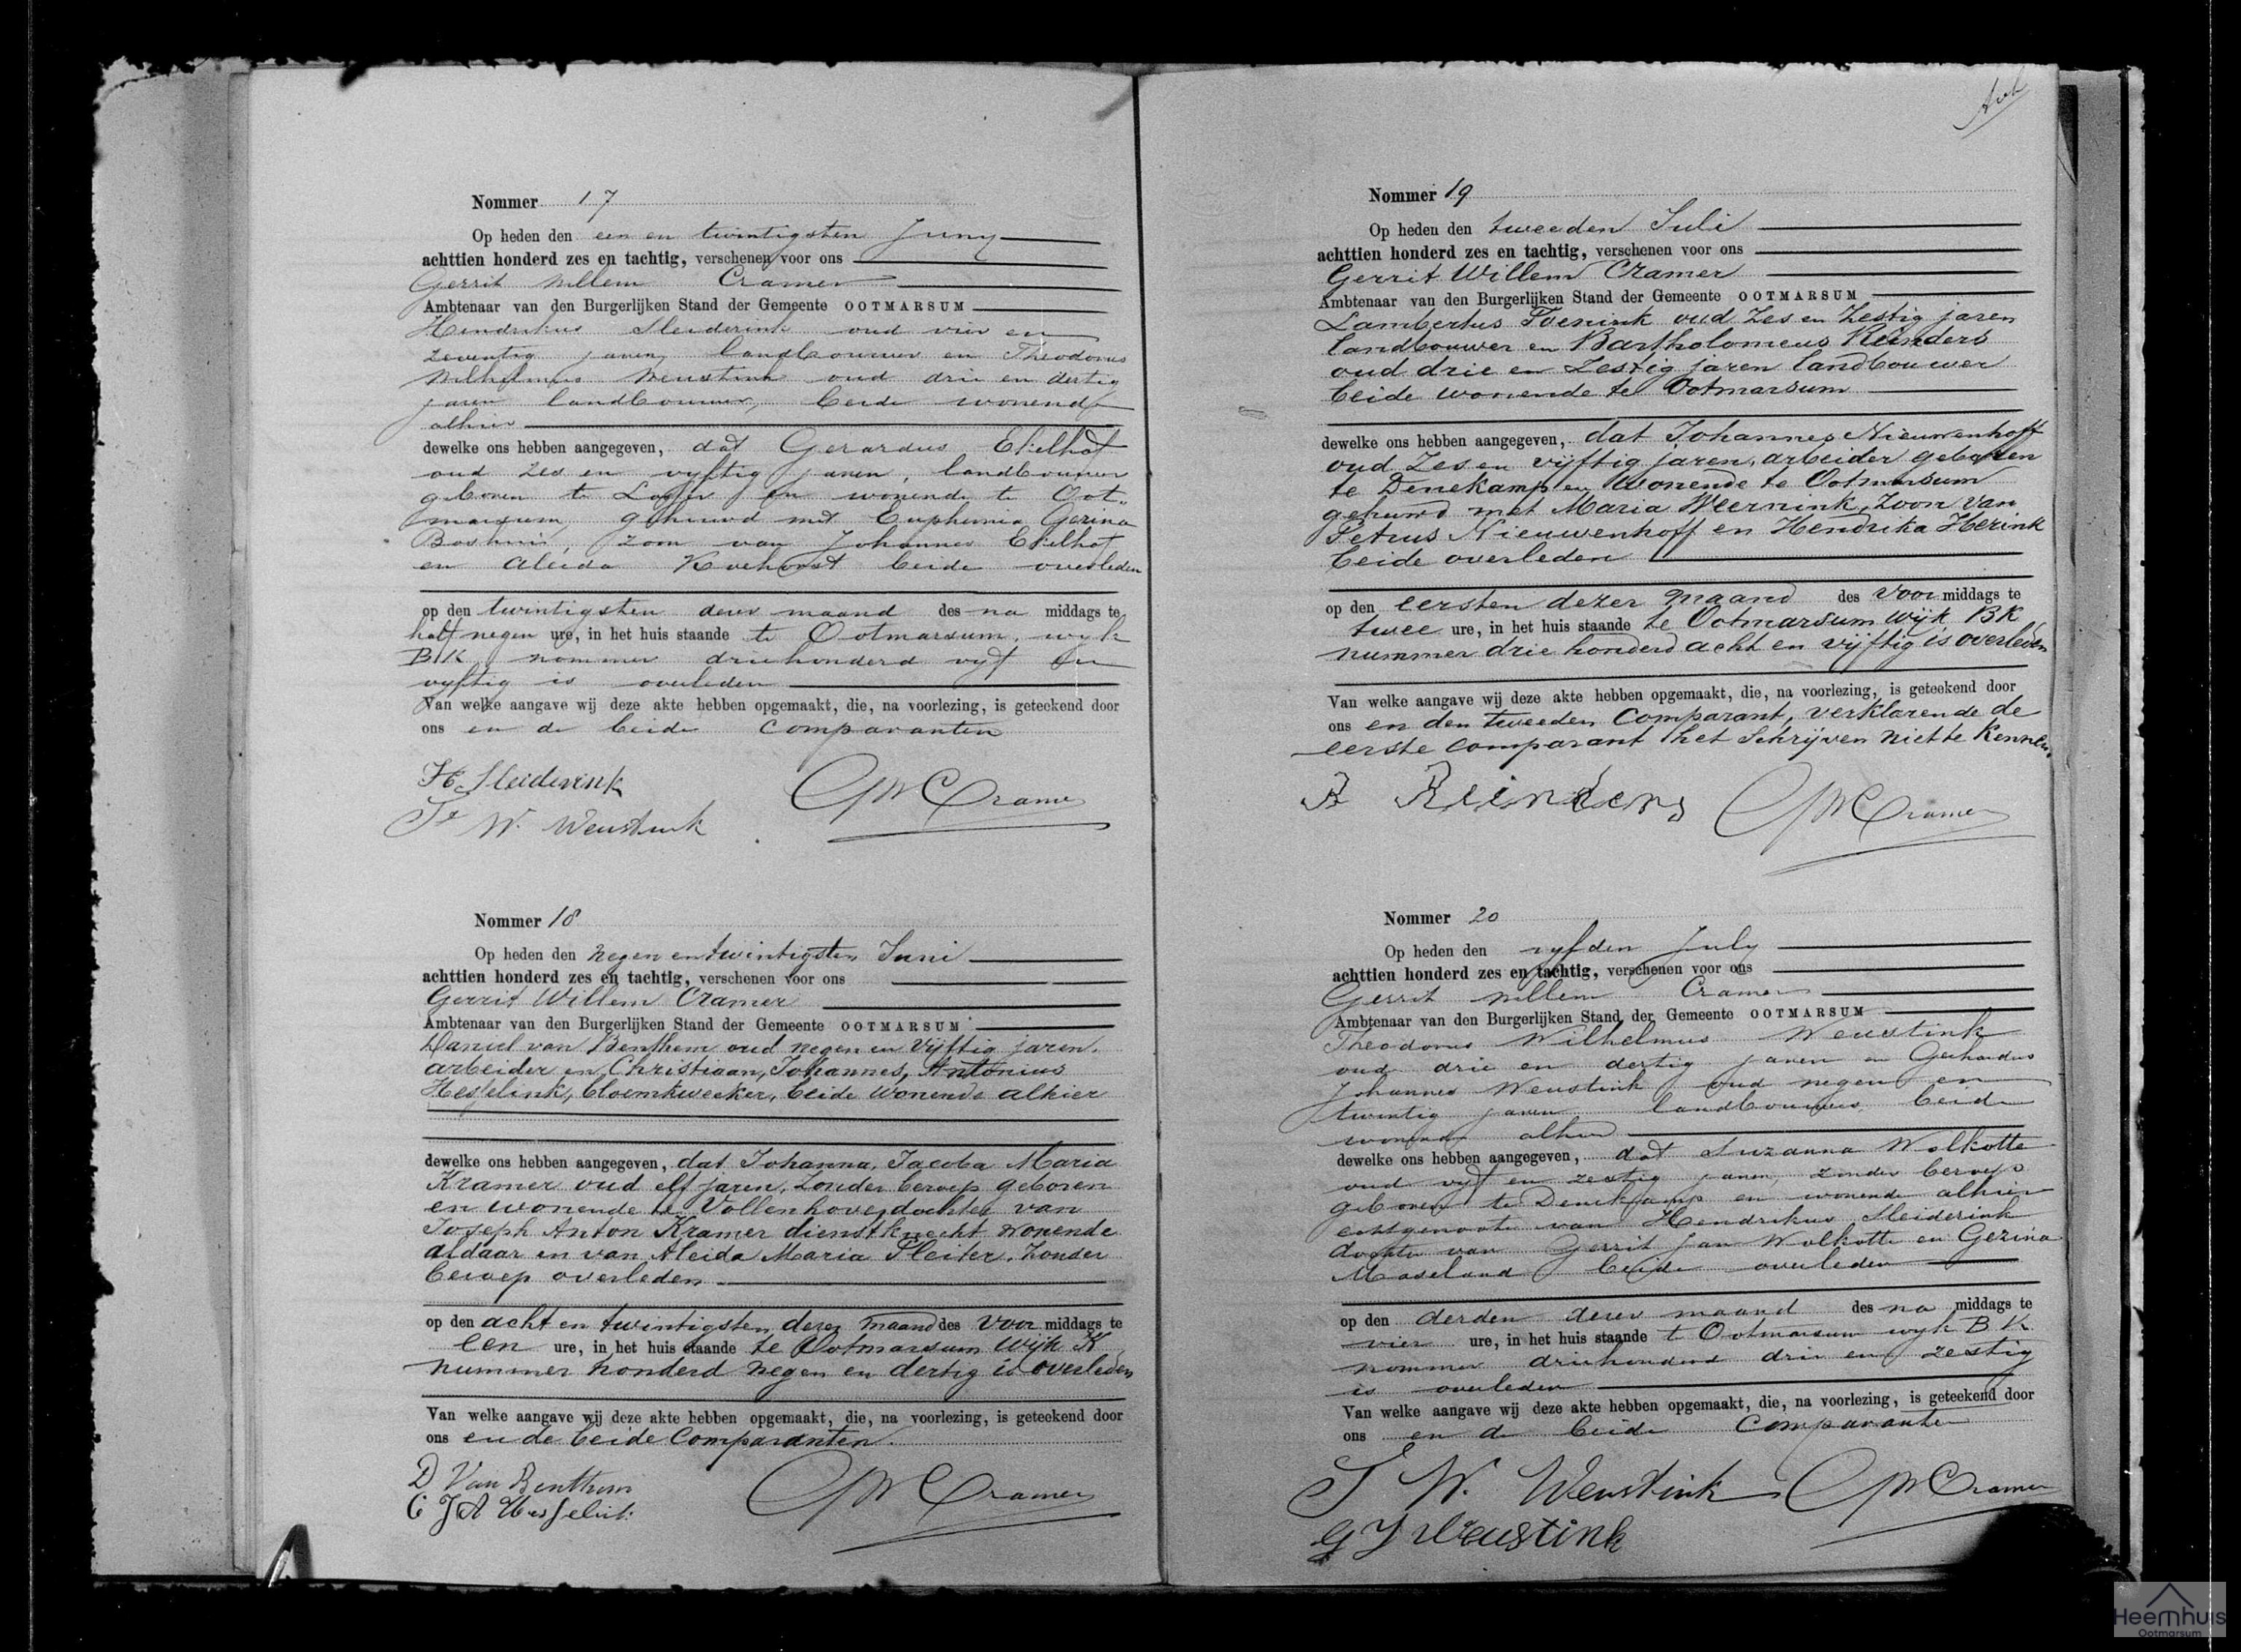 Nommer 17
Op heden den een en twintigsten Juny
achttien honderd zes en tachtig, verschenen voor ons
Gerrit Willem Cramer
Ambtenaar van den Burgerlijken Stand der Gemeente OOTMARSUM
Hendrikus Sleiderink oud vier en
zeventig jaren, landbouwer en Theodorus
Wilhelmus Weustink oud drie en dertig
jaren landbouwer, beide wonende
alhier
dewelke ons hebben aangegeven, dat Gerardus Ekelhof
oud zes en vyftig jaren, landbouwer
geboren te Losser en wonende te Oot„
marsum, gehuwd met Euphemia Gerina
zoon van Johannes Ekelhof
en Aleida Koehorst beide overleden
op den twintigsten dezer maand des na middags te
half negen ure, in het huis staande te Ootmarsum, wyk
BK nommer driehonderd vyf en
vyftig is overleden
Van welke aangave wij deze akte hebben opgemaakt, die, na voorlezing, is geteekend door
ons en de beide comparanten
H. Sleiderink
GW Cramer
T. W. Weustink
Nommer 18
Op heden den negen en twintigsten Juni
achttien honderd zes en tachtig, verschenen voor ons
Gerrit Willem Cramer
Ambtenaar van den Burgerlijken Stand der Gemeente OOTMARSUM
Daniel van Benthem oud negen en vijftig jaren.
arbeider en Christiaan, Johannes, Antonius
Hesselink, bloemkweeker, beide wonende alhier
dewelke ons hebben aangegeven, dat Johanna, Jacoba Maria
Kramer oud elf jaren, zonder beroep geboren
en wonende te Vollenhove, dochter van
Joseph Anton Kramer dienstknecht wonende
aldaar en van Aleida Maria Fleiter. zonder
beroep overleden
op den acht en twintigsten dezer maand des voor middags te
een ure, in het huis staande te Ootmarsum Wijk K
nummer honderd negen en dertig is overleden
Van welke aangave wij deze akte hebben opgemaakt, die, na voorlezing, is geteekend door
ons en de beide Comparanten.
D Van Benthem
C J A Hesselink
GW Cramer
Nommer 19
Op heden den tweeden Juli
achttien honderd zes en tachtig, verschenen voor ons
Gerrit Willem Cramer
Ambtenaar van den Burgerlijken Stand der Gemeente OOTMARSUM
Lambertus Toenink oud zes en zestig jaren
landbouwer en Bartholomeus Reinders
oud drie en zestig jaren landbouwer
beide wonende te Ootmarsum
dewelke ons hebben aangegeven, dat Johannes Nieuwenhoff
oud zes en vijftig jaren, arbeider geboren
te Denekamp en wonende te Ootmarsum
gehuwd met Maria Weernink, zoon van
Petrus Nieuwenhoff en Hendrika Herink
beide overleden
op den eersten dezer maand des voor middags te
twee ure, in het huis staande te Ootmarsum wijk BK
nummer drie honderd acht en vijftig is overleden
Van welke aangave wij deze akte hebben opgemaakt, die, na voorlezing, is geteekend door
ons en den tweeden Comparant, verklarende de
eerste comparant het schrijven niet te kennen.
B Reinders
GW Cramer
Nommer 20
Op heden den vyfden July
achttien honderd zes en tachtig, verschenen voor ons
Gerrit Willem Cramer
Ambtenaar van den Burgerlijken Stand der Gemeente OOTMARSUM
Theodorus Wilhelmus Weustink
oud drie en dertig jaren en Gerhardus
Johannes Weustink oud negen en
twintig jaren landbouwers beide
wonende alhier
dewelke ons hebben aangegeven, dat Suzanna Wolkotte
oud vyf en zestig jaren, zonder beroep
geboren te Denekamp en wonende alhier
echtgenoote van Hendrikus Sleiderink
dochter van Gerrit Jan Wolkotte en Gezina
Maseland beide overleden
op den derden dezer maand des na middags te
vier ure, in het huis staande te Ootmarsum wyk BK
nommer driehonderd drie en zestig
is overleden
Van welke aangave wij deze akte hebben opgemaakt, die, na voorlezing, is geteekend door
ons en de beide Comparanten
T W. Weustink
GW Cramer
G J Weustink
Heemhuis
Ootmarsum